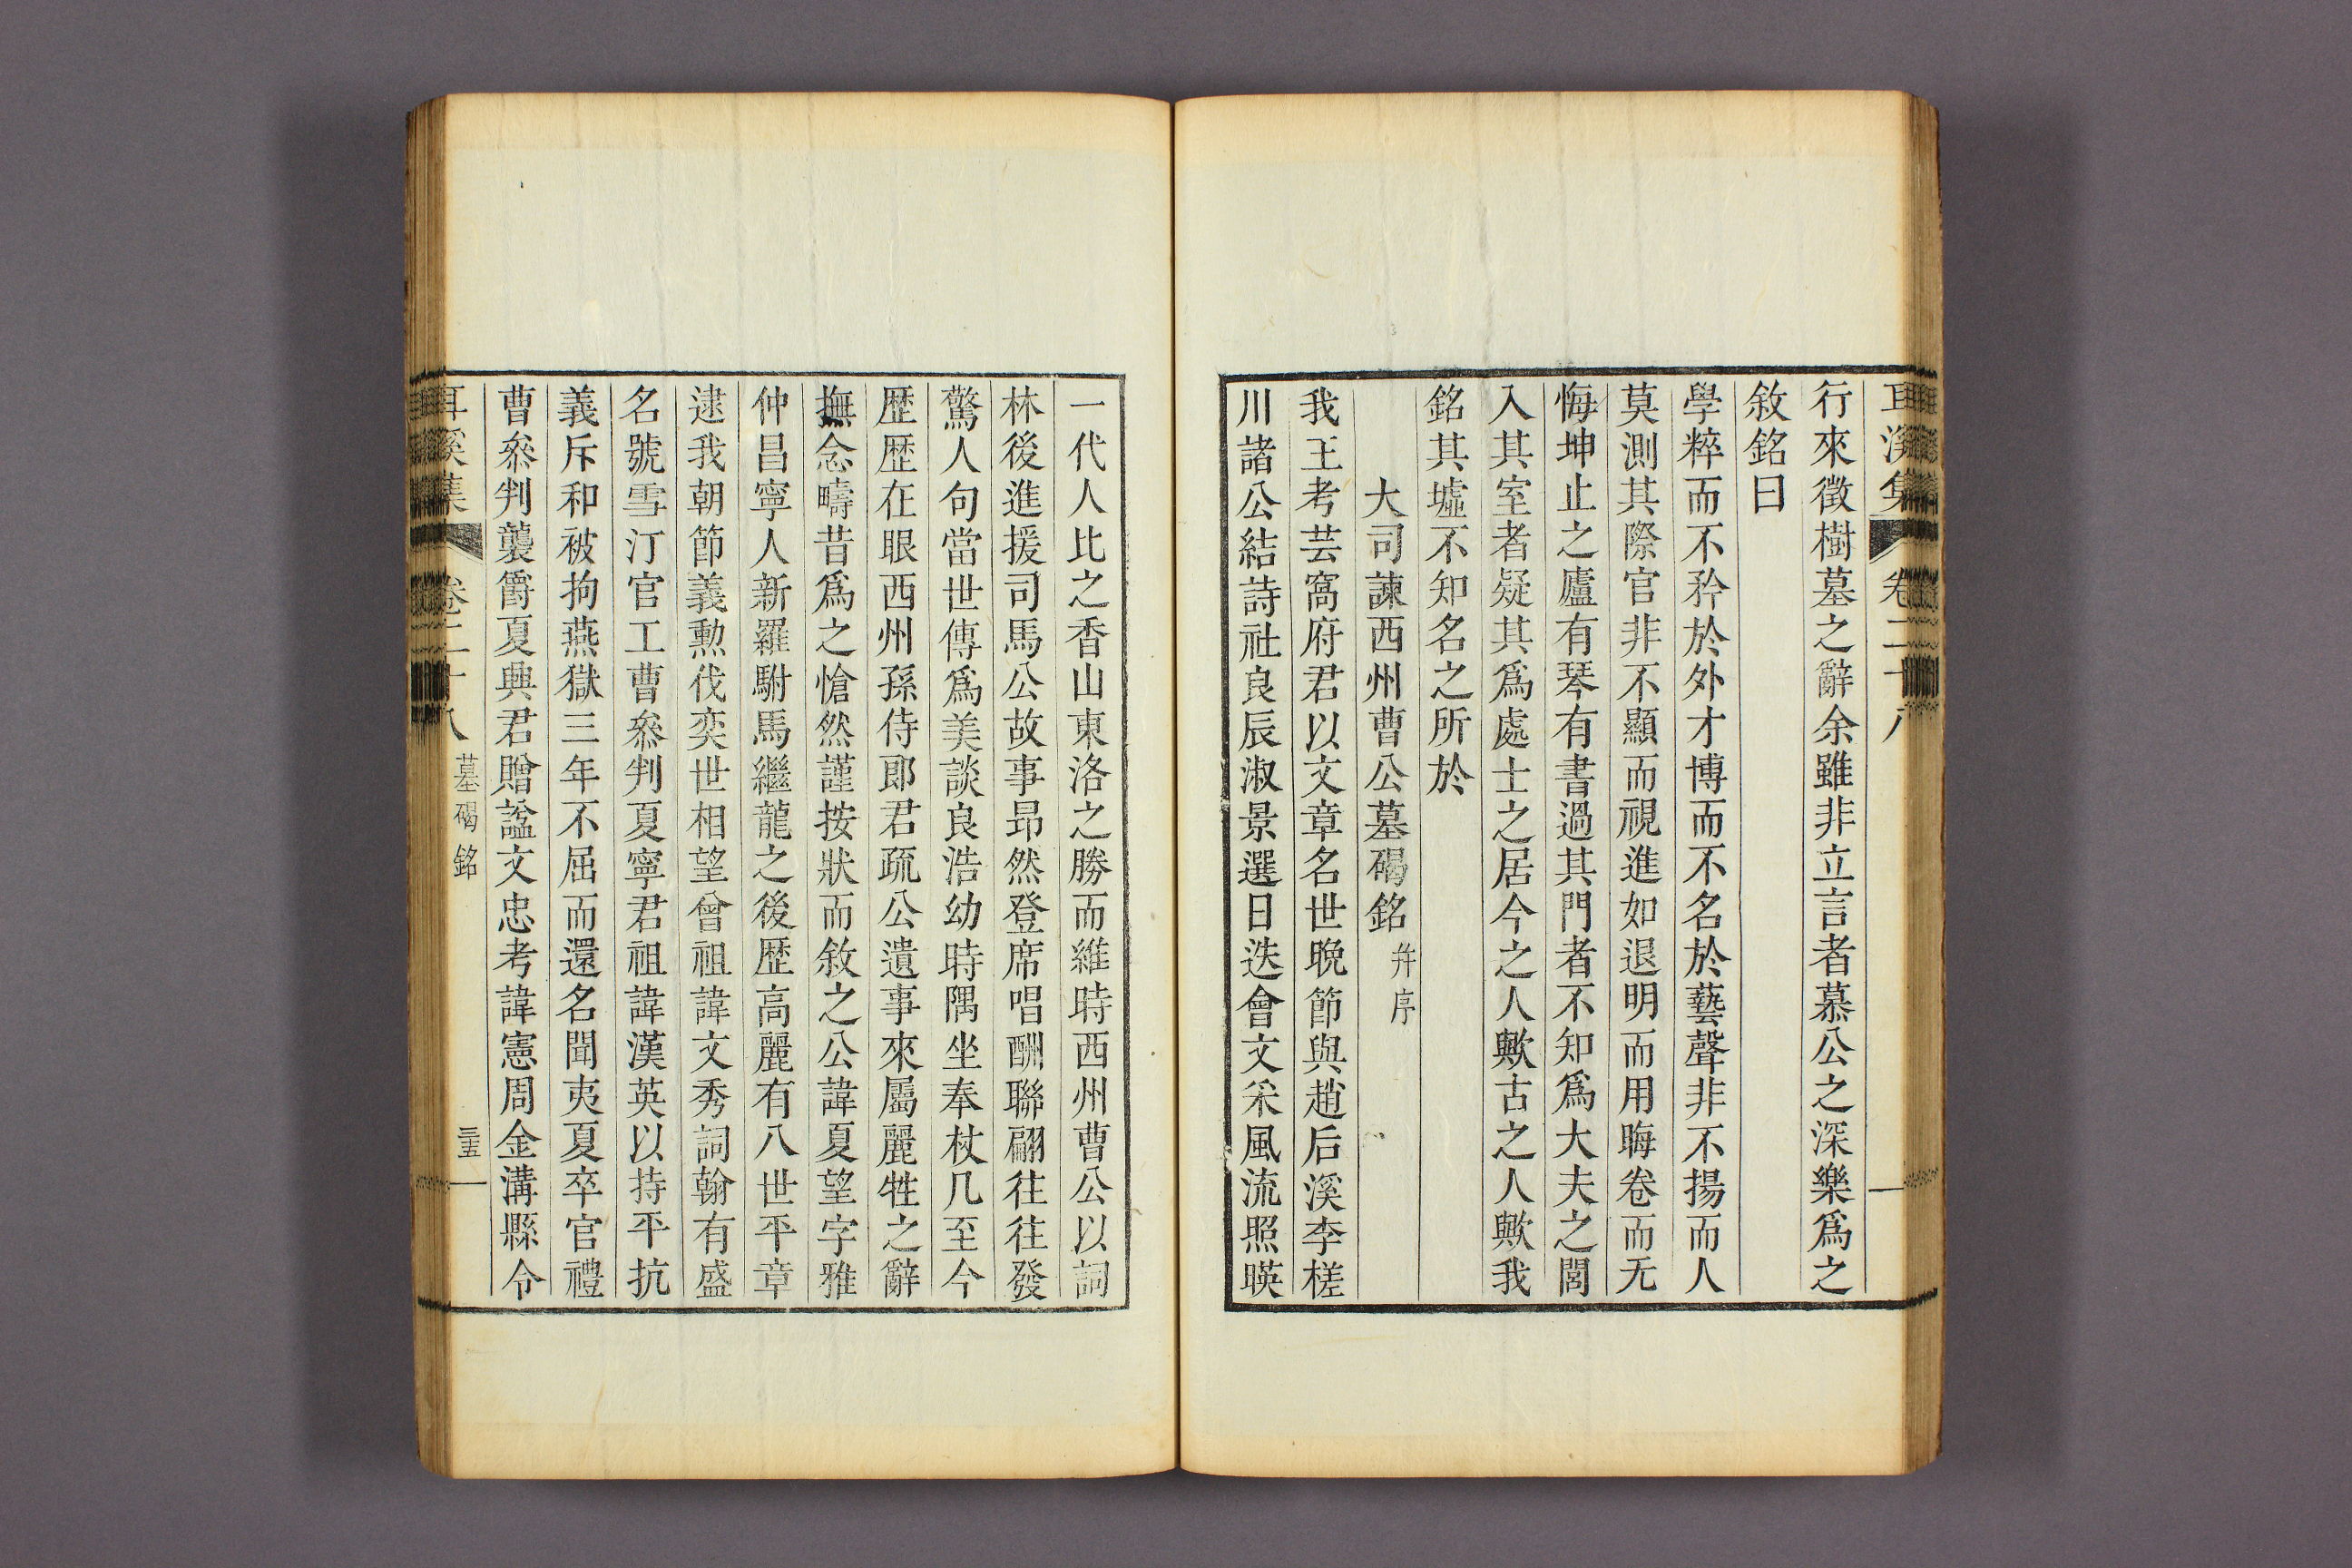 耳溪集 卷二十八
行來徵樹墓之辭余雖非立言者慕公之深樂爲之
敘銘曰
學粹而不矜於外才博而不名於藝聲非不揚而人
莫測其際官非不顯而視進如退明而用晦卷而无
悔坤止之廬有琴有書過其門者不知爲大夫之閭
入其室者疑其爲處士之居今之人歟古之人歟我
銘其墟不知名之所於
大司諫西州曹公墓碣銘 幷序
我王考芸窩府君以文章名世晩節與趙后溪李槎
川諸公結詩社良辰淑景選日迭會文采風流照暎
一代人比之香山東洛之勝而維時西州曹公以詞
林後進援司馬公故事昂然登席唱酬聯翩往往發
驚人句當世傳爲美談良浩幼時隅坐奉杖几至今
歷歷在眼西州孫侍郎君疏公遺事來屬麗牲之辭
撫念疇昔爲之愴然謹按狀而敘之公諱夏望字雅
仲昌寧人新羅駙馬繼龍之後歷高麗有八世平章
逮我朝節義勲伐奕世相望曾祖諱文秀詞翰有盛
名號雪汀官工曹叅判夏寧君祖諱漢英以持平抗
義斥和被拘燕獄三年不屈而還名聞夷夏卒官禮
曹叅判襲爵夏興君贈諡文忠考諱憲周金溝縣令
耳溪集 卷二十八 墓碣銘 三五